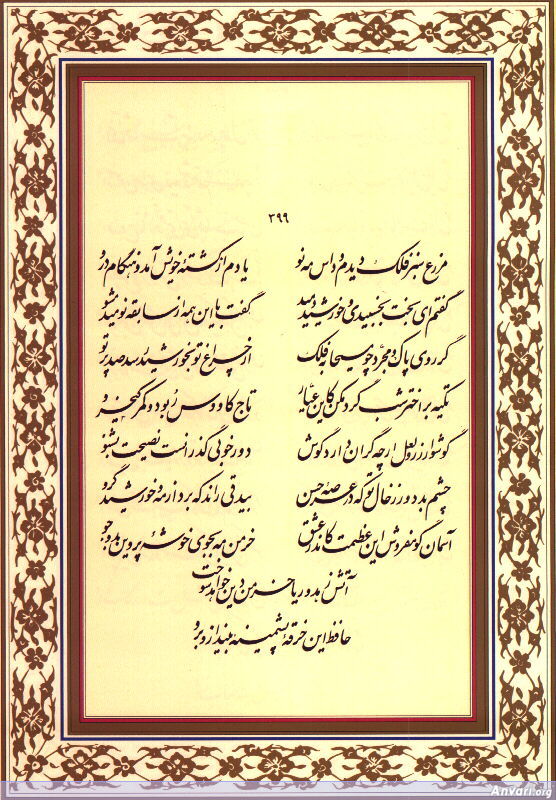 ۳۹۹
مزرع سبز فلک دیدم و داس مه نو یادم از کشته خویش آمد و هنگام درو
گفتم ای بخت بخسبیدی و خورشید دمید گفت با این همه از سابقه نومید مشو
گر روی پاک و مجرد چو مسیحا به فلک از چراغ تو به خورشید رسد صد پرتو
تکیه بر اختر شب گرد مکن کاین عیار تاج کاووس ربود و کمر کیخسرو
گوشوار زر و لعل ارچه گران دارد گوش دور خوبی گذران است نصیحت بشنو
چشم بد دور ز خال تو که در عرصه حسن بیدقی راند که برد از مه و خورشید گرو
آسمان گو مفروش این عظمت کاندر عشق خرمن مه به جوی خوشه پروین به دو جو
آتش زهد و ریا خرمن دین خواهد سوخت
حافظ این خرقه پشمینه بینداز و برو
Anvari.org